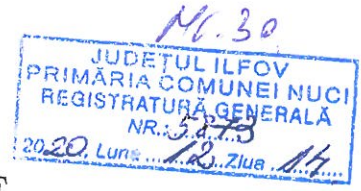 JUDEŢUL ILFOV
PRIMĂRIA COMUNEI NUCI
REGISTRATURĂ GENERALĂ
NR.: 5873
2020, Luna 12 Ziua 14